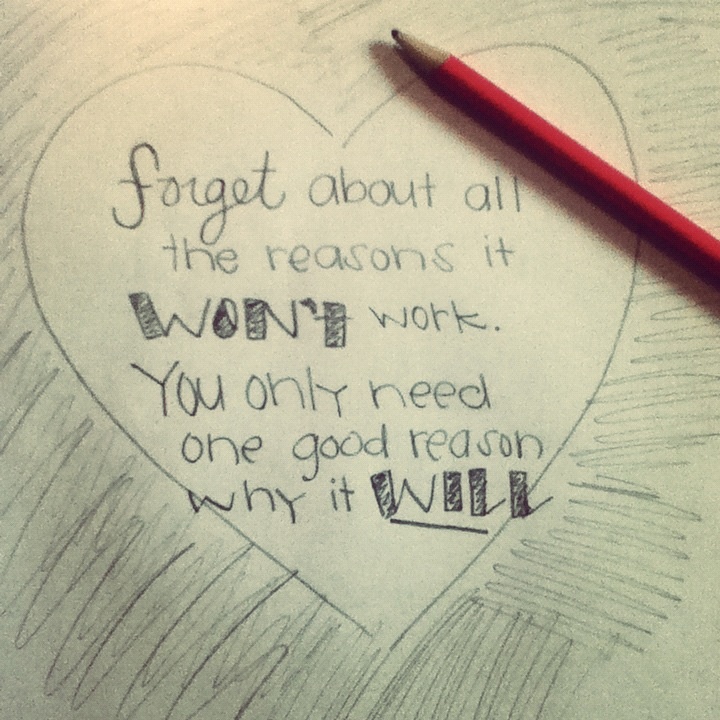 forget about all
the reasons it
WON't work.
You only need
one good reason
why it WILL